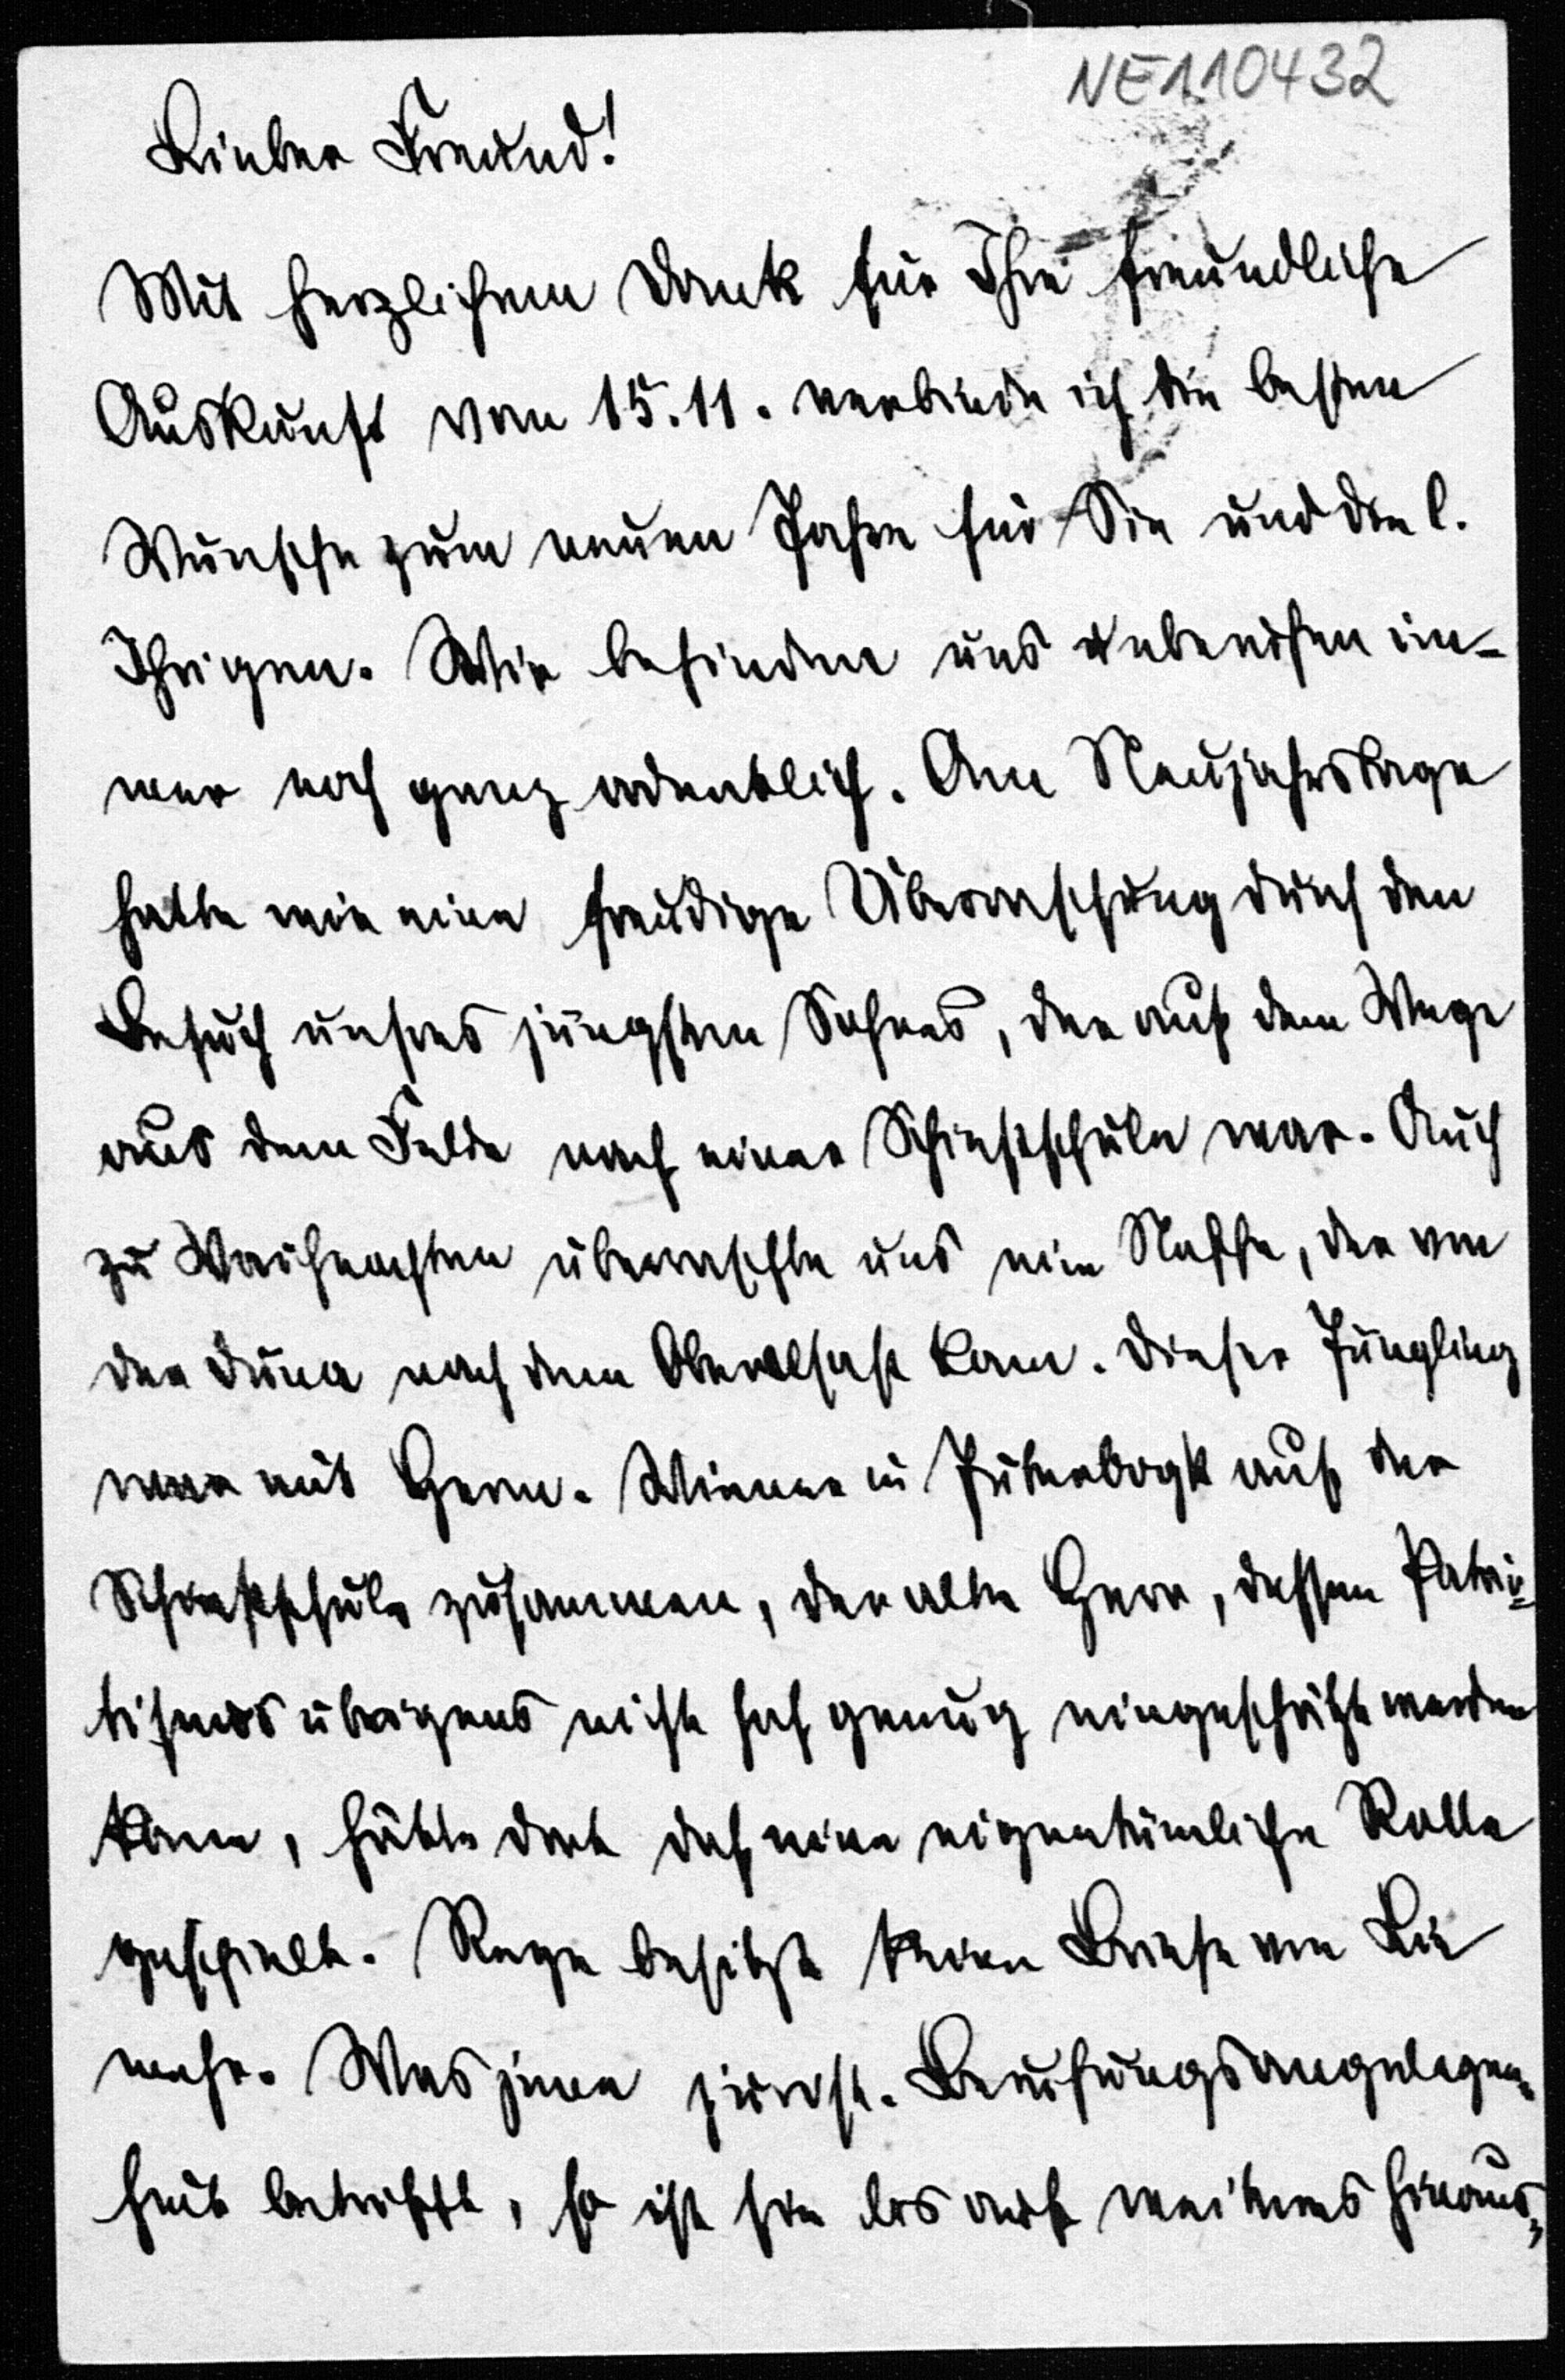 NE110432
Lieber Freund!
Mit herzlichem Dank für Ihre freundliche
Auskunft vom 15.11. verbinde ich die besten
Wünsche zum neuen Jahre für Sie und die l.
Ihrigen. Wir befinden uns unberufen im-
mer noch ganz ordentlich. Am Neujahrstage
hatte wir eine freudige Überraschung durch den
Besuch unsres jüngsten Sohnes, der auf dem Wege
aus dem Felde nach einer Schießschule war. Auch
zu Weihnachten überraschte uns ein Neffe, der von
der Düna nach dem Oberelsaß kam. Dieser Jüngling
war mit Herm. Wiener in Jüterbogk auf der
Schießschule zusammen, der alte Herr, dessen Patrio-
tismus übrigens nicht hoch genug eingeschätzt werden
kann, hätte dort doch eine eigentümliche Rolle
gespielt. Runge besitzt keine Briefe von Lie
mehr. Was jene Berufungsangelegen-
heit betrifft, so ist sie bis auf weiteres hinaus-